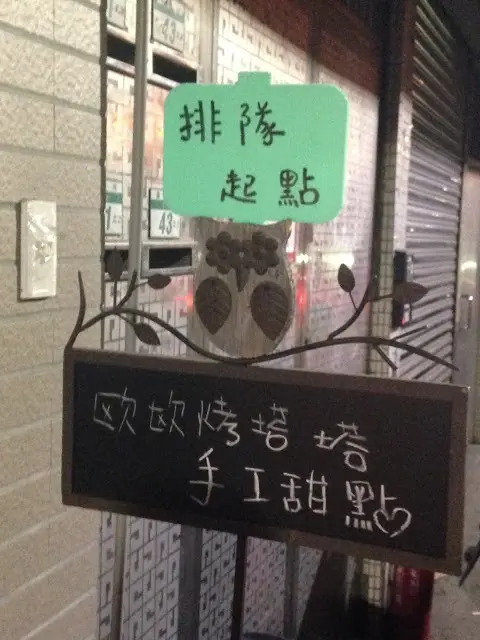 排隊
起點
43
43
欧欧烤塔塔
手工甜點